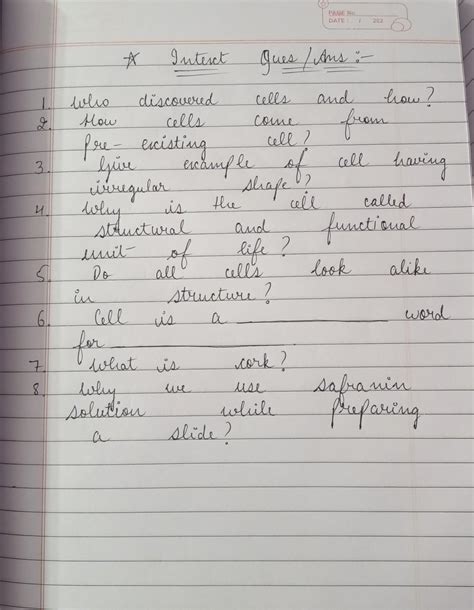 PAGE No.
DATE : / / 202
☆ Intext Ques/Ans :-
1. Who discovered cells and how?
2. How cells come from
Pre-existing cell?
3. Give example of cell having
irregular shape?
4. Why is the cell called
structural and functional
unit of life?
5. Do all cells look alike
in structure?
6. Cell is a __________ word
for __________
7. What is cork?
8. Why we use safranin
solution while preparing
a slide?